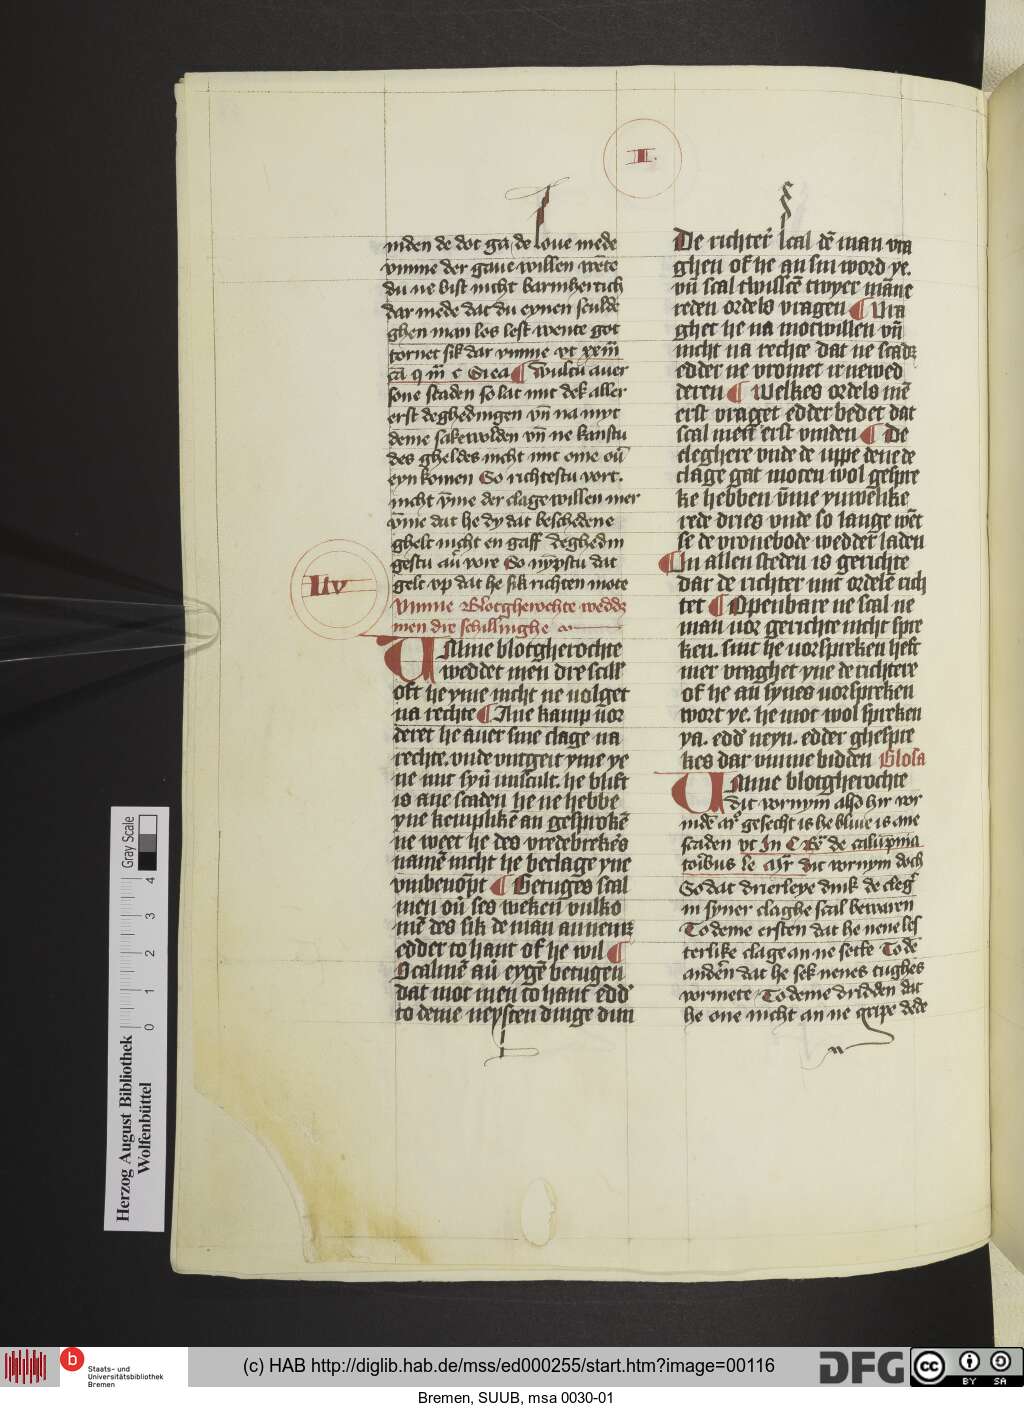 I.
inden de dot ga de loue mede
vmme der gaue willen wēte
du ne bist nicht barmhertich
dar mede dat du eynen sculde
ghen man los lest wente got
tornet sik dar vmme vt xxiij
Wultu auer
sone staden so lat mit dek aller
erst deghedingen vn̄ na myt
deme sakewolden vn̄ ne kanstu
des gheldes nicht mit eme ou̅
eyn komen So richtestu vort.
nicht v̄me der clage willen mer
v̄me dat he dy dat beschedene
ghelt nicht en gaff deghedin
gestu au̅ vore So nympstu dat
gelt vp dat he sik richten mote
Liv
Vmme Blotgherochte wedde
men dre schillinghe
Vmme blotgherochte
weddet men dre scill'
oft he yme nicht ne volget
na rechte ¶ Ane kamp vor
deret he auer sine clage na
rechte. vnde vntgeit yme ye
ne mit syn̄ vnscult. he blift
is ane scaden he ne hebbe
yne kemplikē an gesprokē
ne weet he des vredebrekers
namē nicht he beclage yne
vnbenōpt ¶ Getuges scal
men ou̅ ses weken vulko
mē des sik de man annemet
edder to hant of he wil ¶
Scalmē au̅ eygē betugen
dat mot men to hant edd'
to deme neysten dinge don
De richter scal dē man vra
ghen of he an sin word ye.
vn̄ scal twisscē twyer māne
reden ordels vragen ¶ Vra
ghet he na motwillen vn̄
nicht na rechte dat ne scadet
edder ne vromet ir newed
deren ¶ Welkes ordels mē
erst vraget edder bedet dat
scal men erst vinden ¶ De
cleghere vnde de uppe dene de
clage gat moten wol gespre
ke hebben v̄me ynwelike
rede dries vnde so lange wēt
se de vronebode wedder laden
¶ In allen steden is gerichte
dar de richter mit ordelē rich
tet ¶ Openbare ne scal ne
man vor gerichte nicht spre
ken. sint he vorspreken heft
mer vraghet yne de richtere
of he an synes vorspreken
wort ye. he mot wol spreken
ya. edd' neyn. edder ghespre
kes dar vmme bidden Glosa
Vmme blotgherochte
dit vornym also hir vor
scaden vt In C
dit vornym doch
So dat drierleye dink de cleg'
in syner claghe scal bewaren
To deme ersten dat he nene les
terlike clage an ne sette To dē
anderen dat he sek nenes tughes
vormete To deme dridden dat
he one nicht an ne gripe dede
Gray Scale
0 1 2 3 4
Herzog August Bibliothek
Wolfenbüttel
b
Staats- und
Universitätsbibliothek
Bremen
(c) HAB http://diglib.hab.de/mss/ed000255/start.htm?image=00116
DFG
cc
BY SA
Bremen, SUUB, msa 0030-01